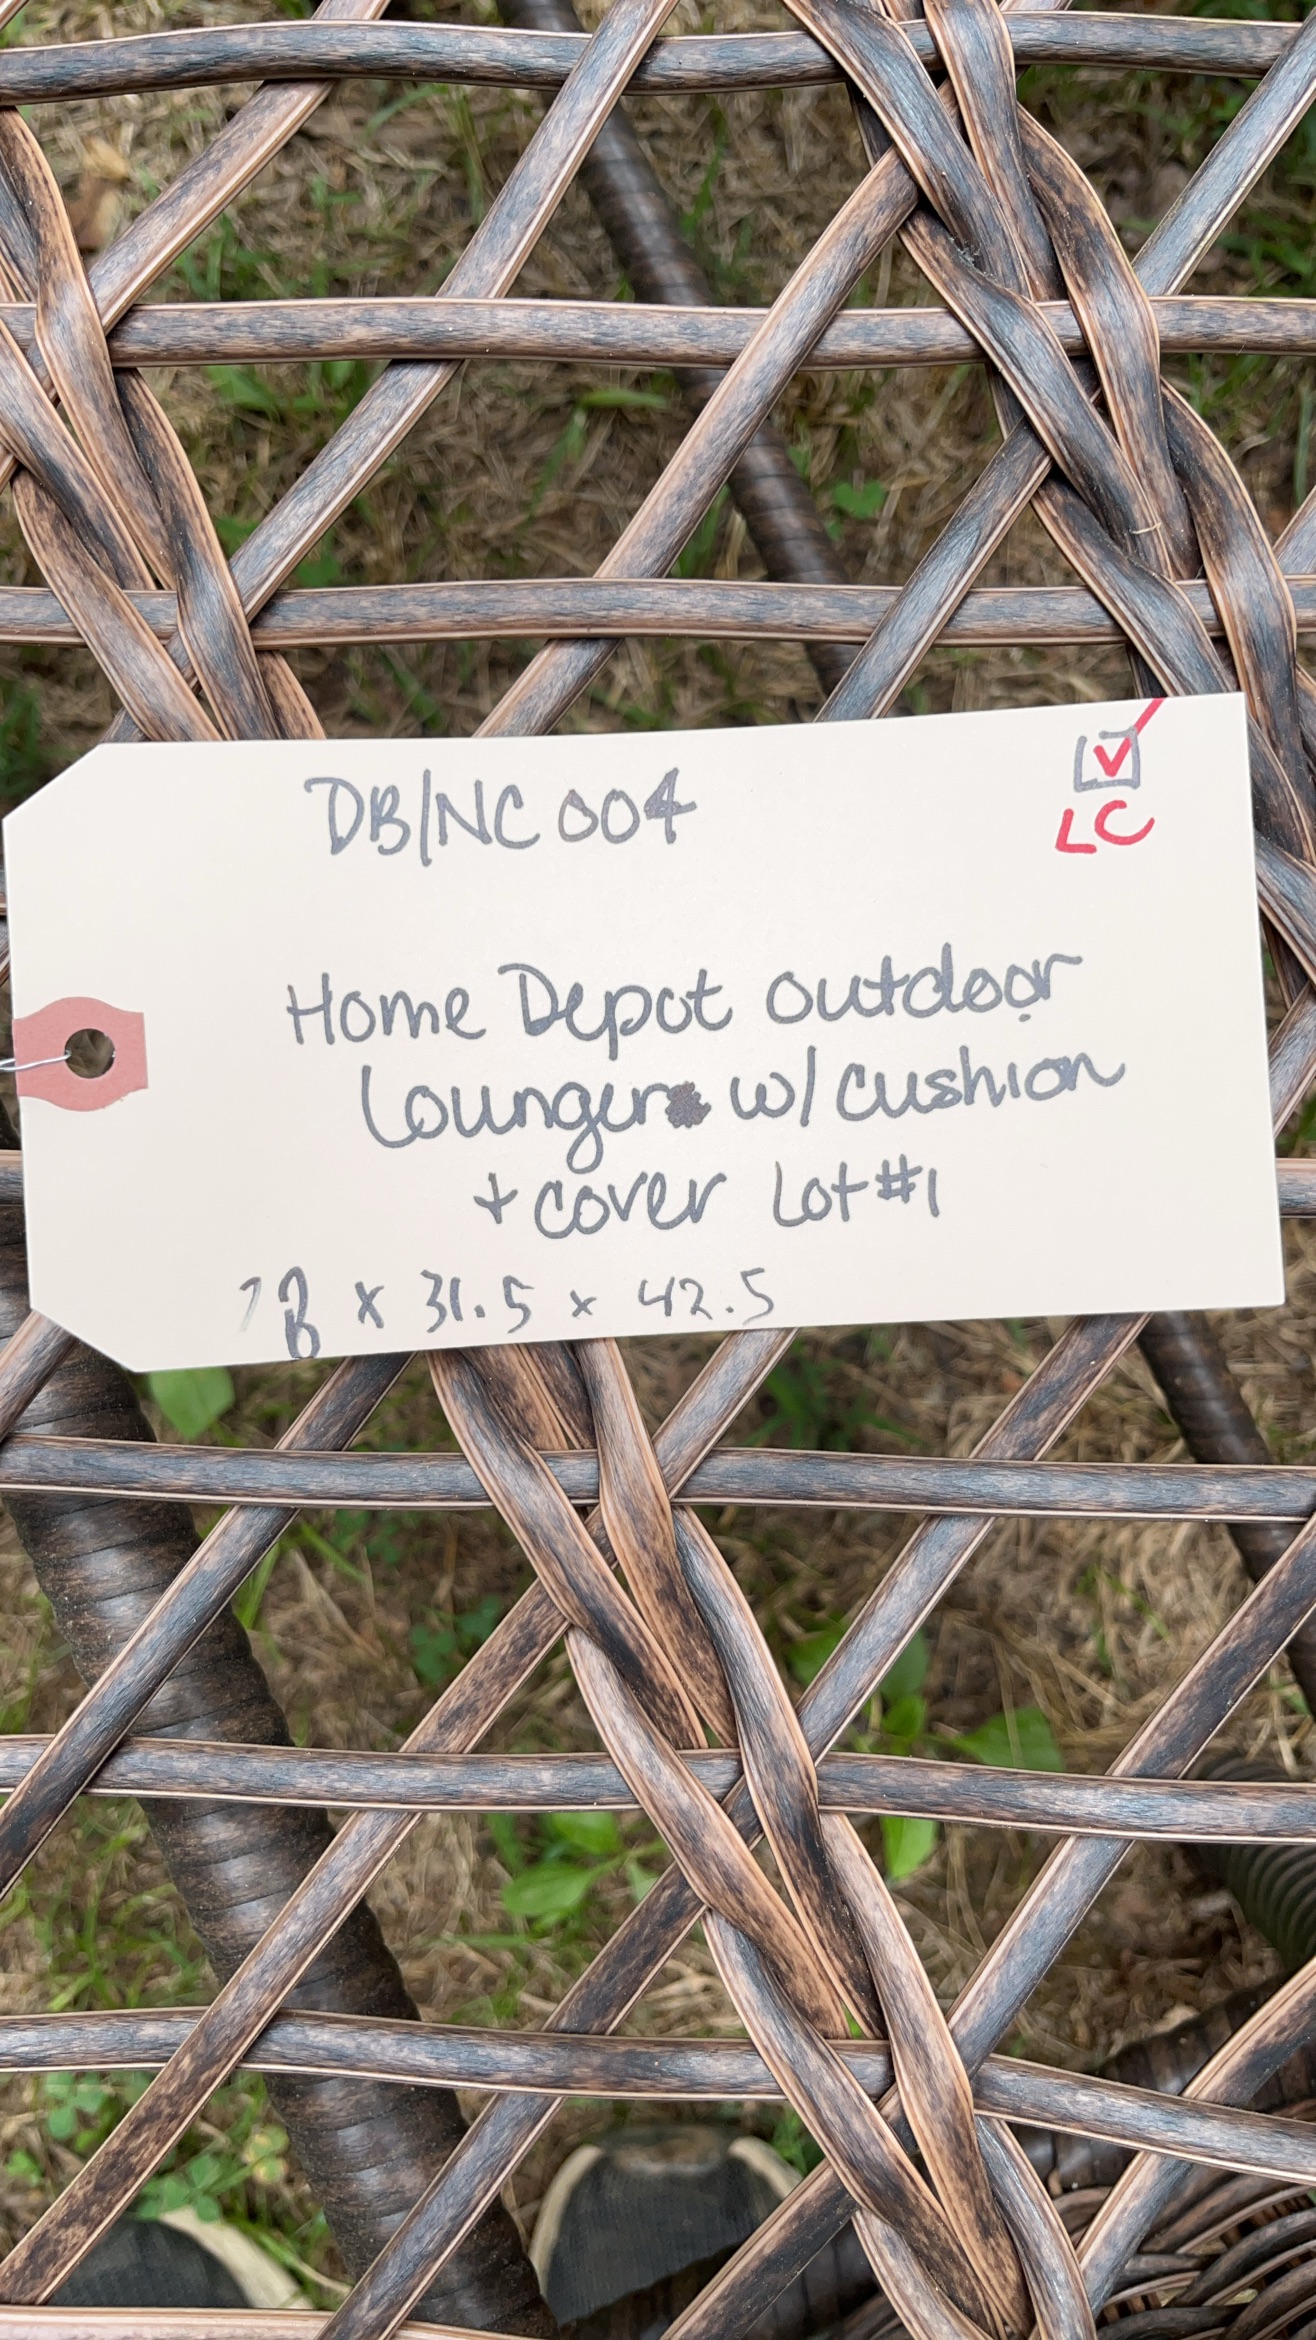 DB/NC 004
LC
Home Depot outdoor
Lounger w/ cushion
+ cover Lot #1
78 x 31.5 x 42.5